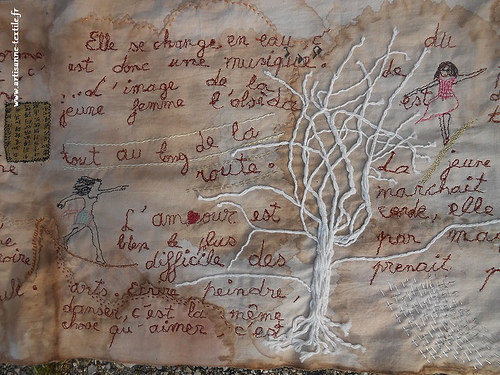 www.artisanne-textile.fr
Elle se change en eau c'
est donc une musique.
...L'image de la
jeune femme l'obsède
tout au long de la
route.
L'amour est
bien le plus
difficile des
arts. Ecrire, peindre,
danser, c'est la même
chose qu'aimer. c'est
du
de
est
La jeune
marchait
corde, elle
par
prenait